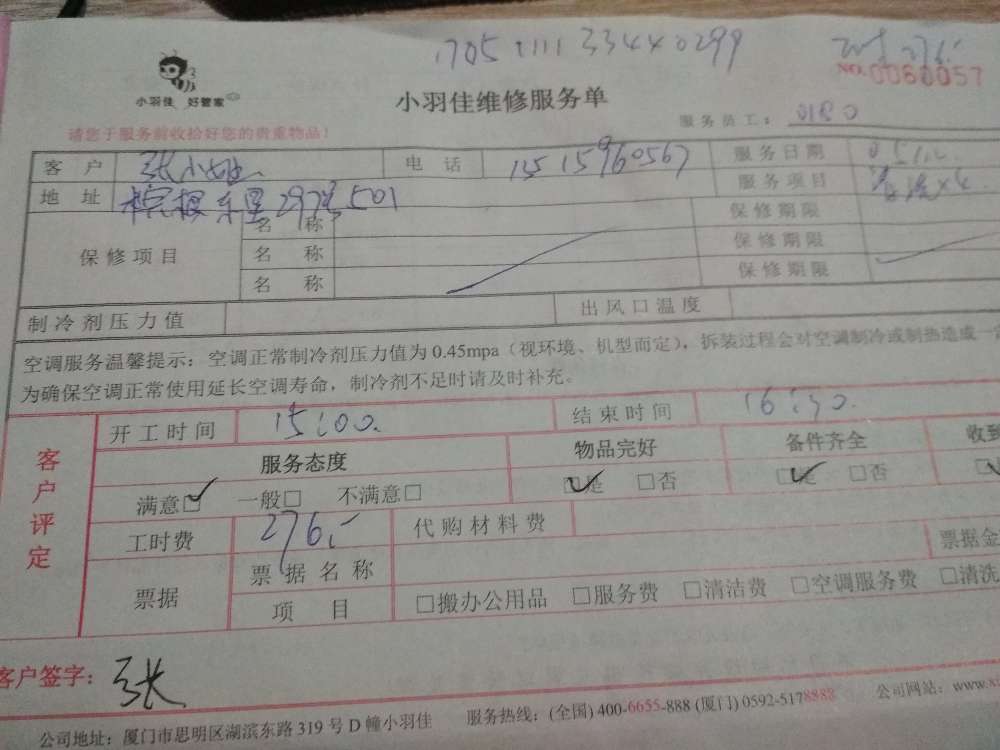 1705 1111 33440299
276.
小羽佳 好管家
NO.0060057
小羽佳维修服务单
请您于服务前收拾好您的贵重物品！
服务员工： 0180
客 户 张小姐 电 话 1515960567 服务日期
地 址 297号501 服务项目
保修项目 名 称 保修期限
名 称 保修期限
名 称 保修期限
制冷剂压力值 出风口温度
空调服务温馨提示：空调正常制冷剂压力值为0.45mpa（视环境、机型而定），拆装过程会对空调制冷或制热造成一
为确保空调正常使用延长空调寿命，制冷剂不足时请及时补充。
客户评定
开工时间 15:00. 结束时间 16:30.
服务态度 物品完好 备件齐全 收到
满意☑ 一般□ 不满意□ ☑是 □否 ☑是 □否
工时费 276. 代购材料费
票据 票据名称 票据金
项 目 □搬办公用品 □服务费 □清洁费 □空调服务费 □清洗
客户签字： 张
公司地址：厦门市思明区湖滨东路319号D幢小羽佳 服务热线：(全国) 400-6655-888 (厦门) 0592-5178888 公司网站：www.x